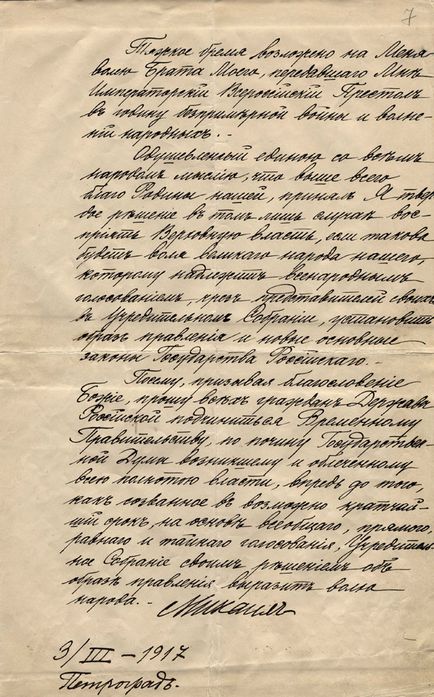 7
Тяжкое бремя возложено на Меня
волею Брата Моего, передавшаго Мнѣ
Императорскій Всероссійскій Престолъ
въ годину безпримѣрной войны и волне-
ній народныхъ.
Одушевленный единою со всѣмъ
народомъ мыслію, что выше всего
благо Родины нашей, принялъ Я твер-
дое рѣшеніе въ томъ лишь случаѣ вос-
пріять Верховную власть, если такова
будетъ воля великаго народа нашего,
которому надлежитъ всенароднымъ
голосованіемъ, чрезъ представителей своихъ
въ Учредительномъ Собраніи, установить
образъ правленія и новые основные
законы Государства Россійскаго.
Посему, призывая благословеніе
Божіе, прошу всѣхъ гражданъ Державы
Россійской подчиниться Временному
Правительству, по почину Государствен-
ной Думы возникшему и облеченному
всею полнотою власти, впредь до того,
какъ созванное въ возможно кратчай-
шій срокъ, на основѣ всеобщаго, прямого,
равнаго и тайнаго голосованія, Учредитель-
ное Собраніе своимъ рѣшеніемъ объ
образѣ правленія выразитъ волю
народа.
Михаилъ
3/III – 1917
Петроградъ.